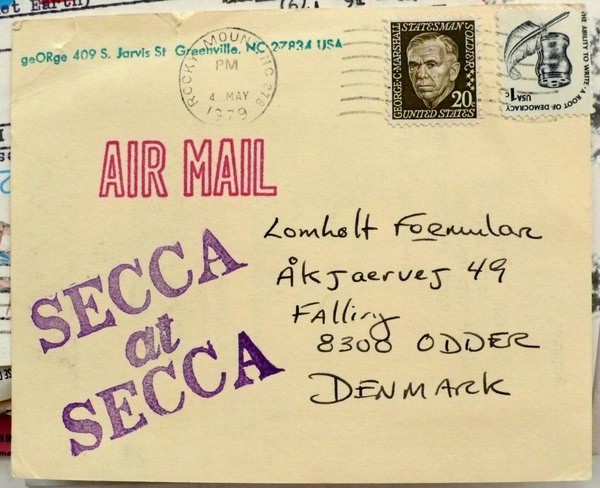 et Earth)
(6).
geORge 409 S. Jarvis St Greenville, NC 27834 USA
ROCKY MOUNT, NC 278
PM
4 MAY
1979
GEORGE·C·MARSHALL
STATESMAN
SOLDIER
20c
UNITED STATES
THE ABILITY TO WRITE · A ROOT OF DEMOCRACY
USA 1c
AIR MAIL
SECCA
at
SECCA
Lomholt Formular
Åkjaervej 49
Falling
8300 ODDER
DENMARK